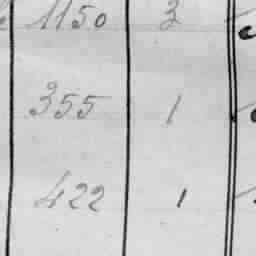 1150 3
355 1
422 1